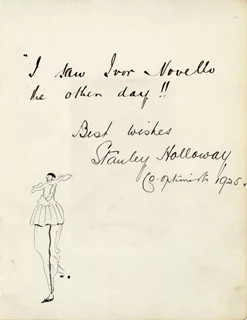 "I saw Ivor Novello
the other day!!
Best wishes
Stanley Holloway
Co-optimists 1925.